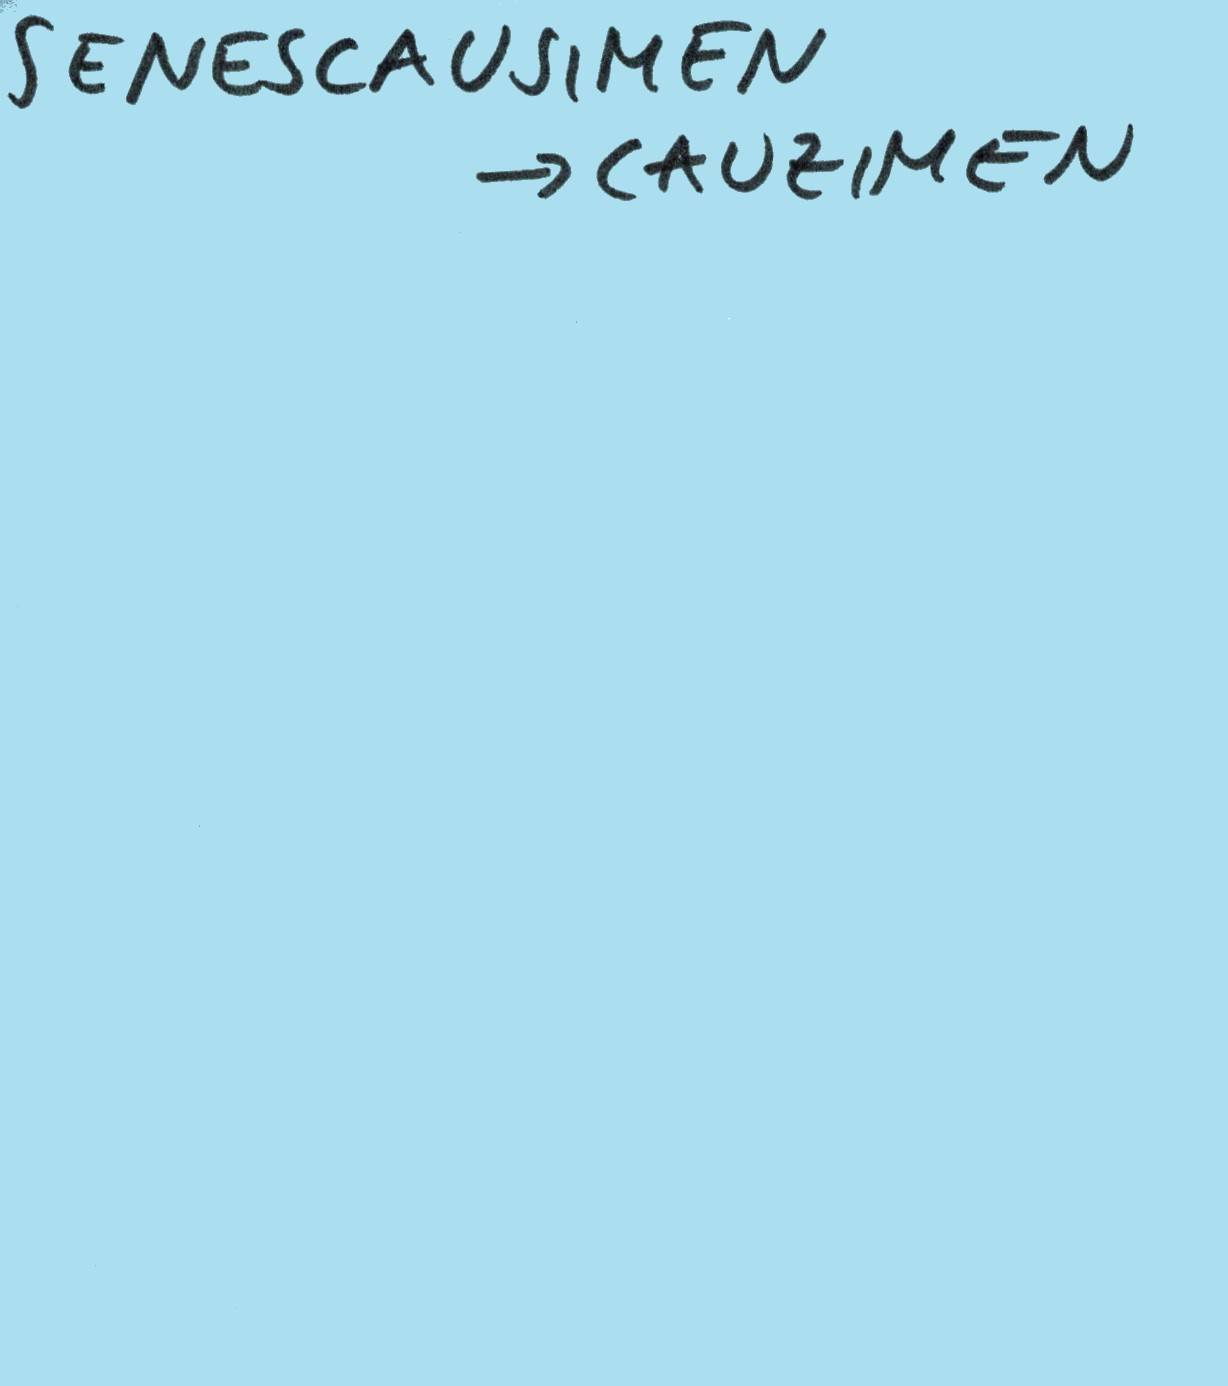 SENESCAUSIMEN
→ CAUZIMEN